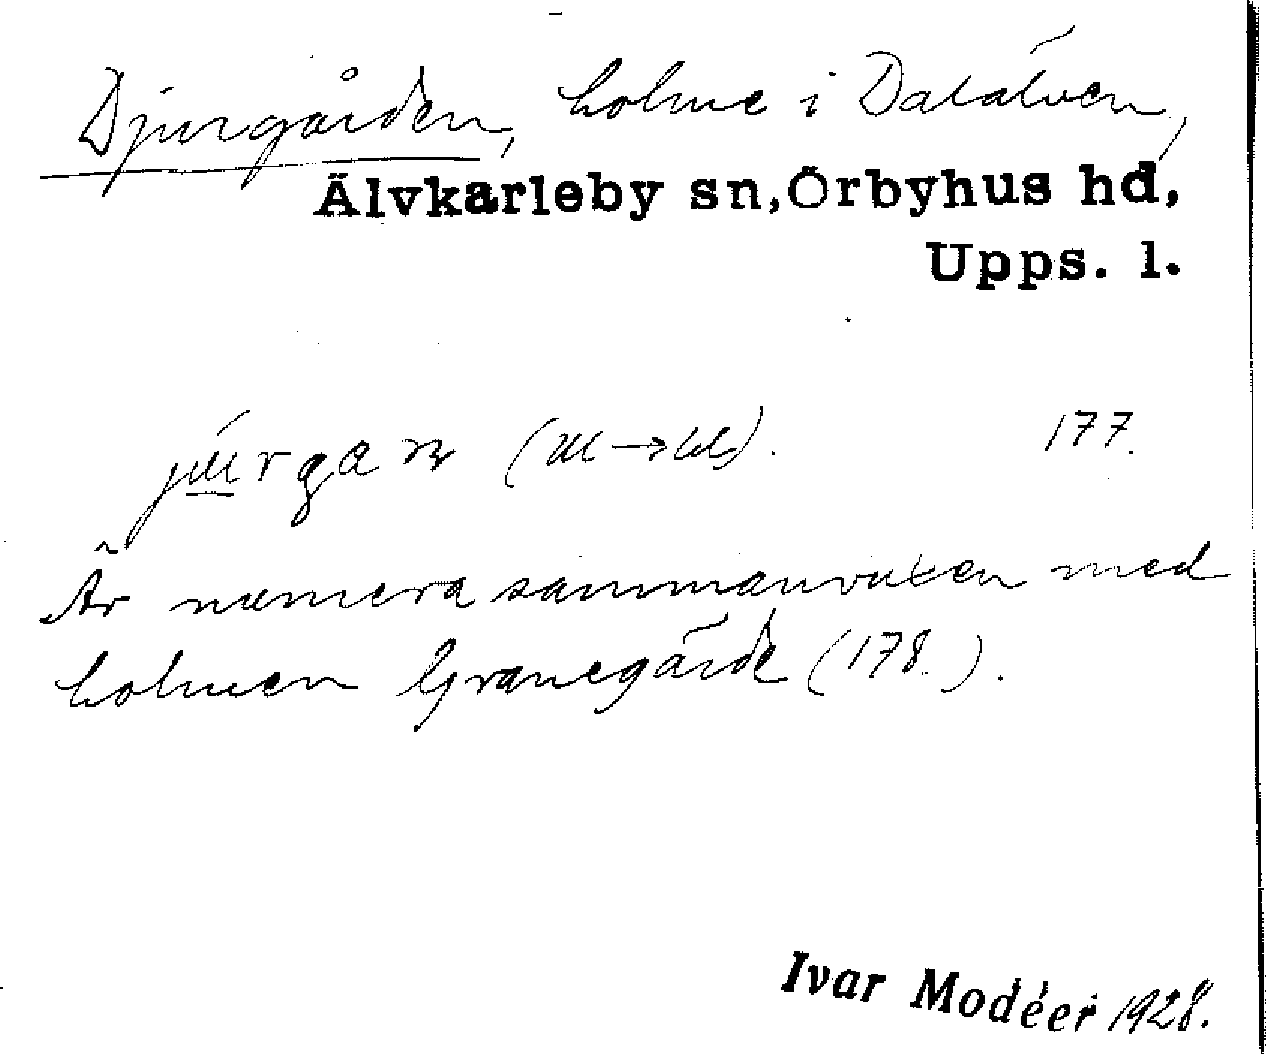 Djurgården, holme i Dalälven,
Älvkarleby sn, Örbyhus hd,
Upps. l.
177.
Är numera sammanvuxen med
holmen Granegärde (178.).
Ivar Modéer 1928.